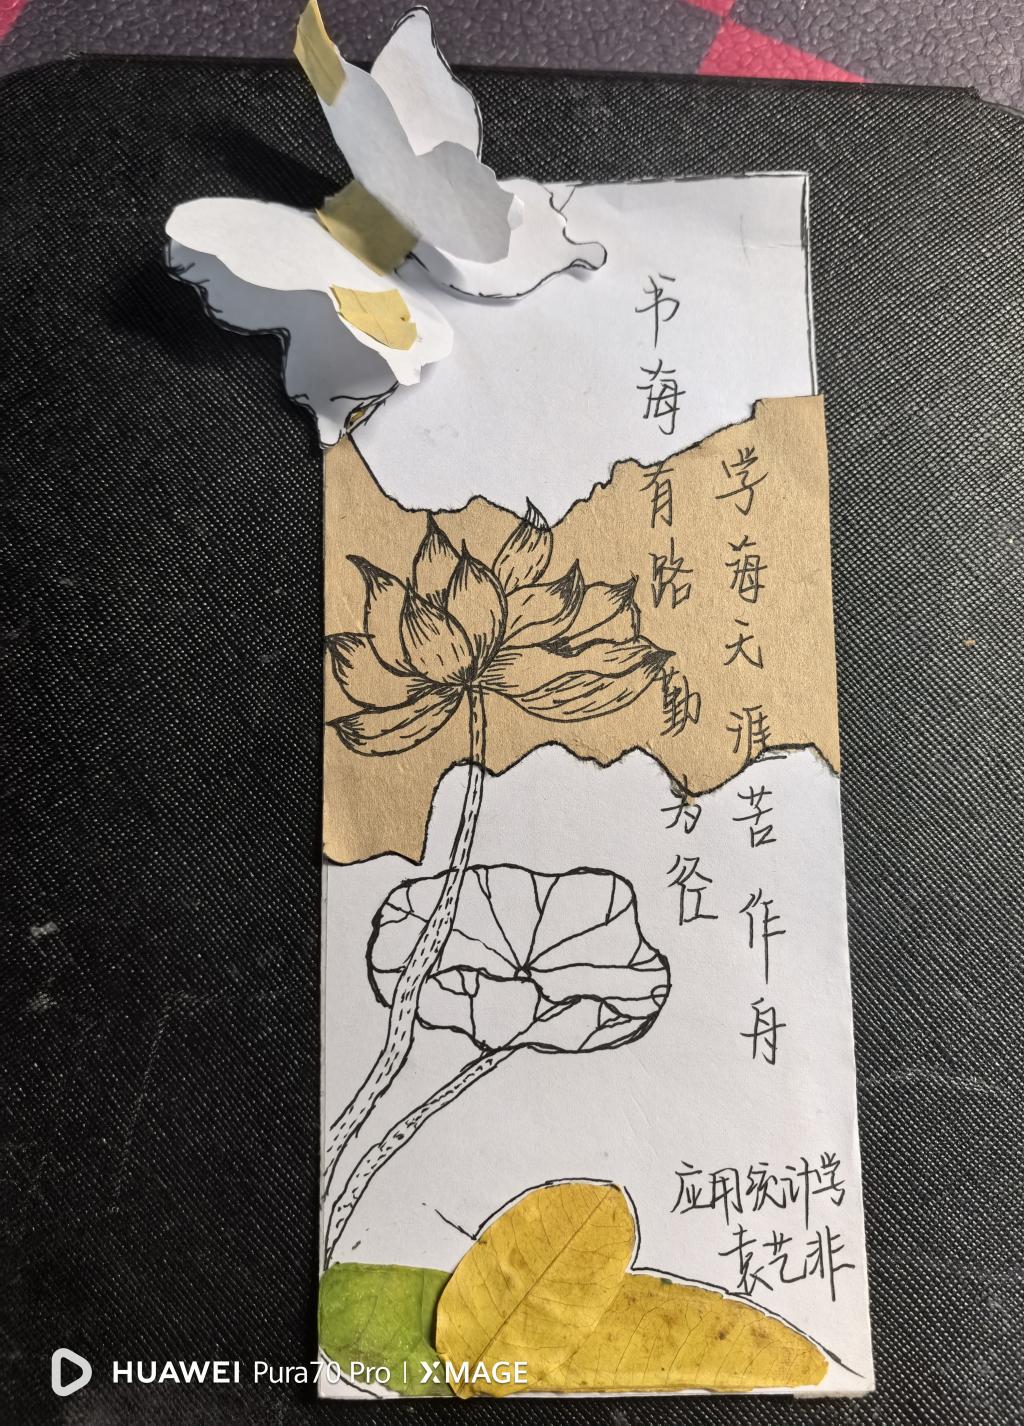 书海有路勤为径
学海无涯苦作舟
应用统计学
袁艺非
HUAWEI Pura70 Pro | XMAGE